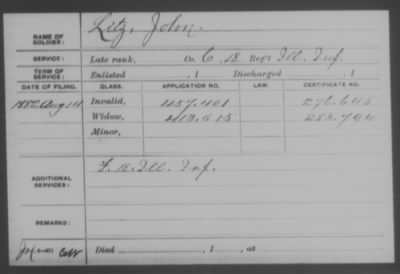 NAME OF SOLDIER: Litz, John.
SERVICE: Late rank, Co. C, 18 Reg't Ill. Inf.
TERM OF SERVICE: Enlisted , 1 Discharged , 1
DATE OF FILING. CLASS. APPLICATION NO. LAW. CERTIFICATE NO.
1882 Aug 14 Invalid, 457.401 276.645
Widow, 413.515 283.794
Minor,
ADDITIONAL SERVICES: F. 18. Ill. Inf.
REMARKS:
Died , 1 , at